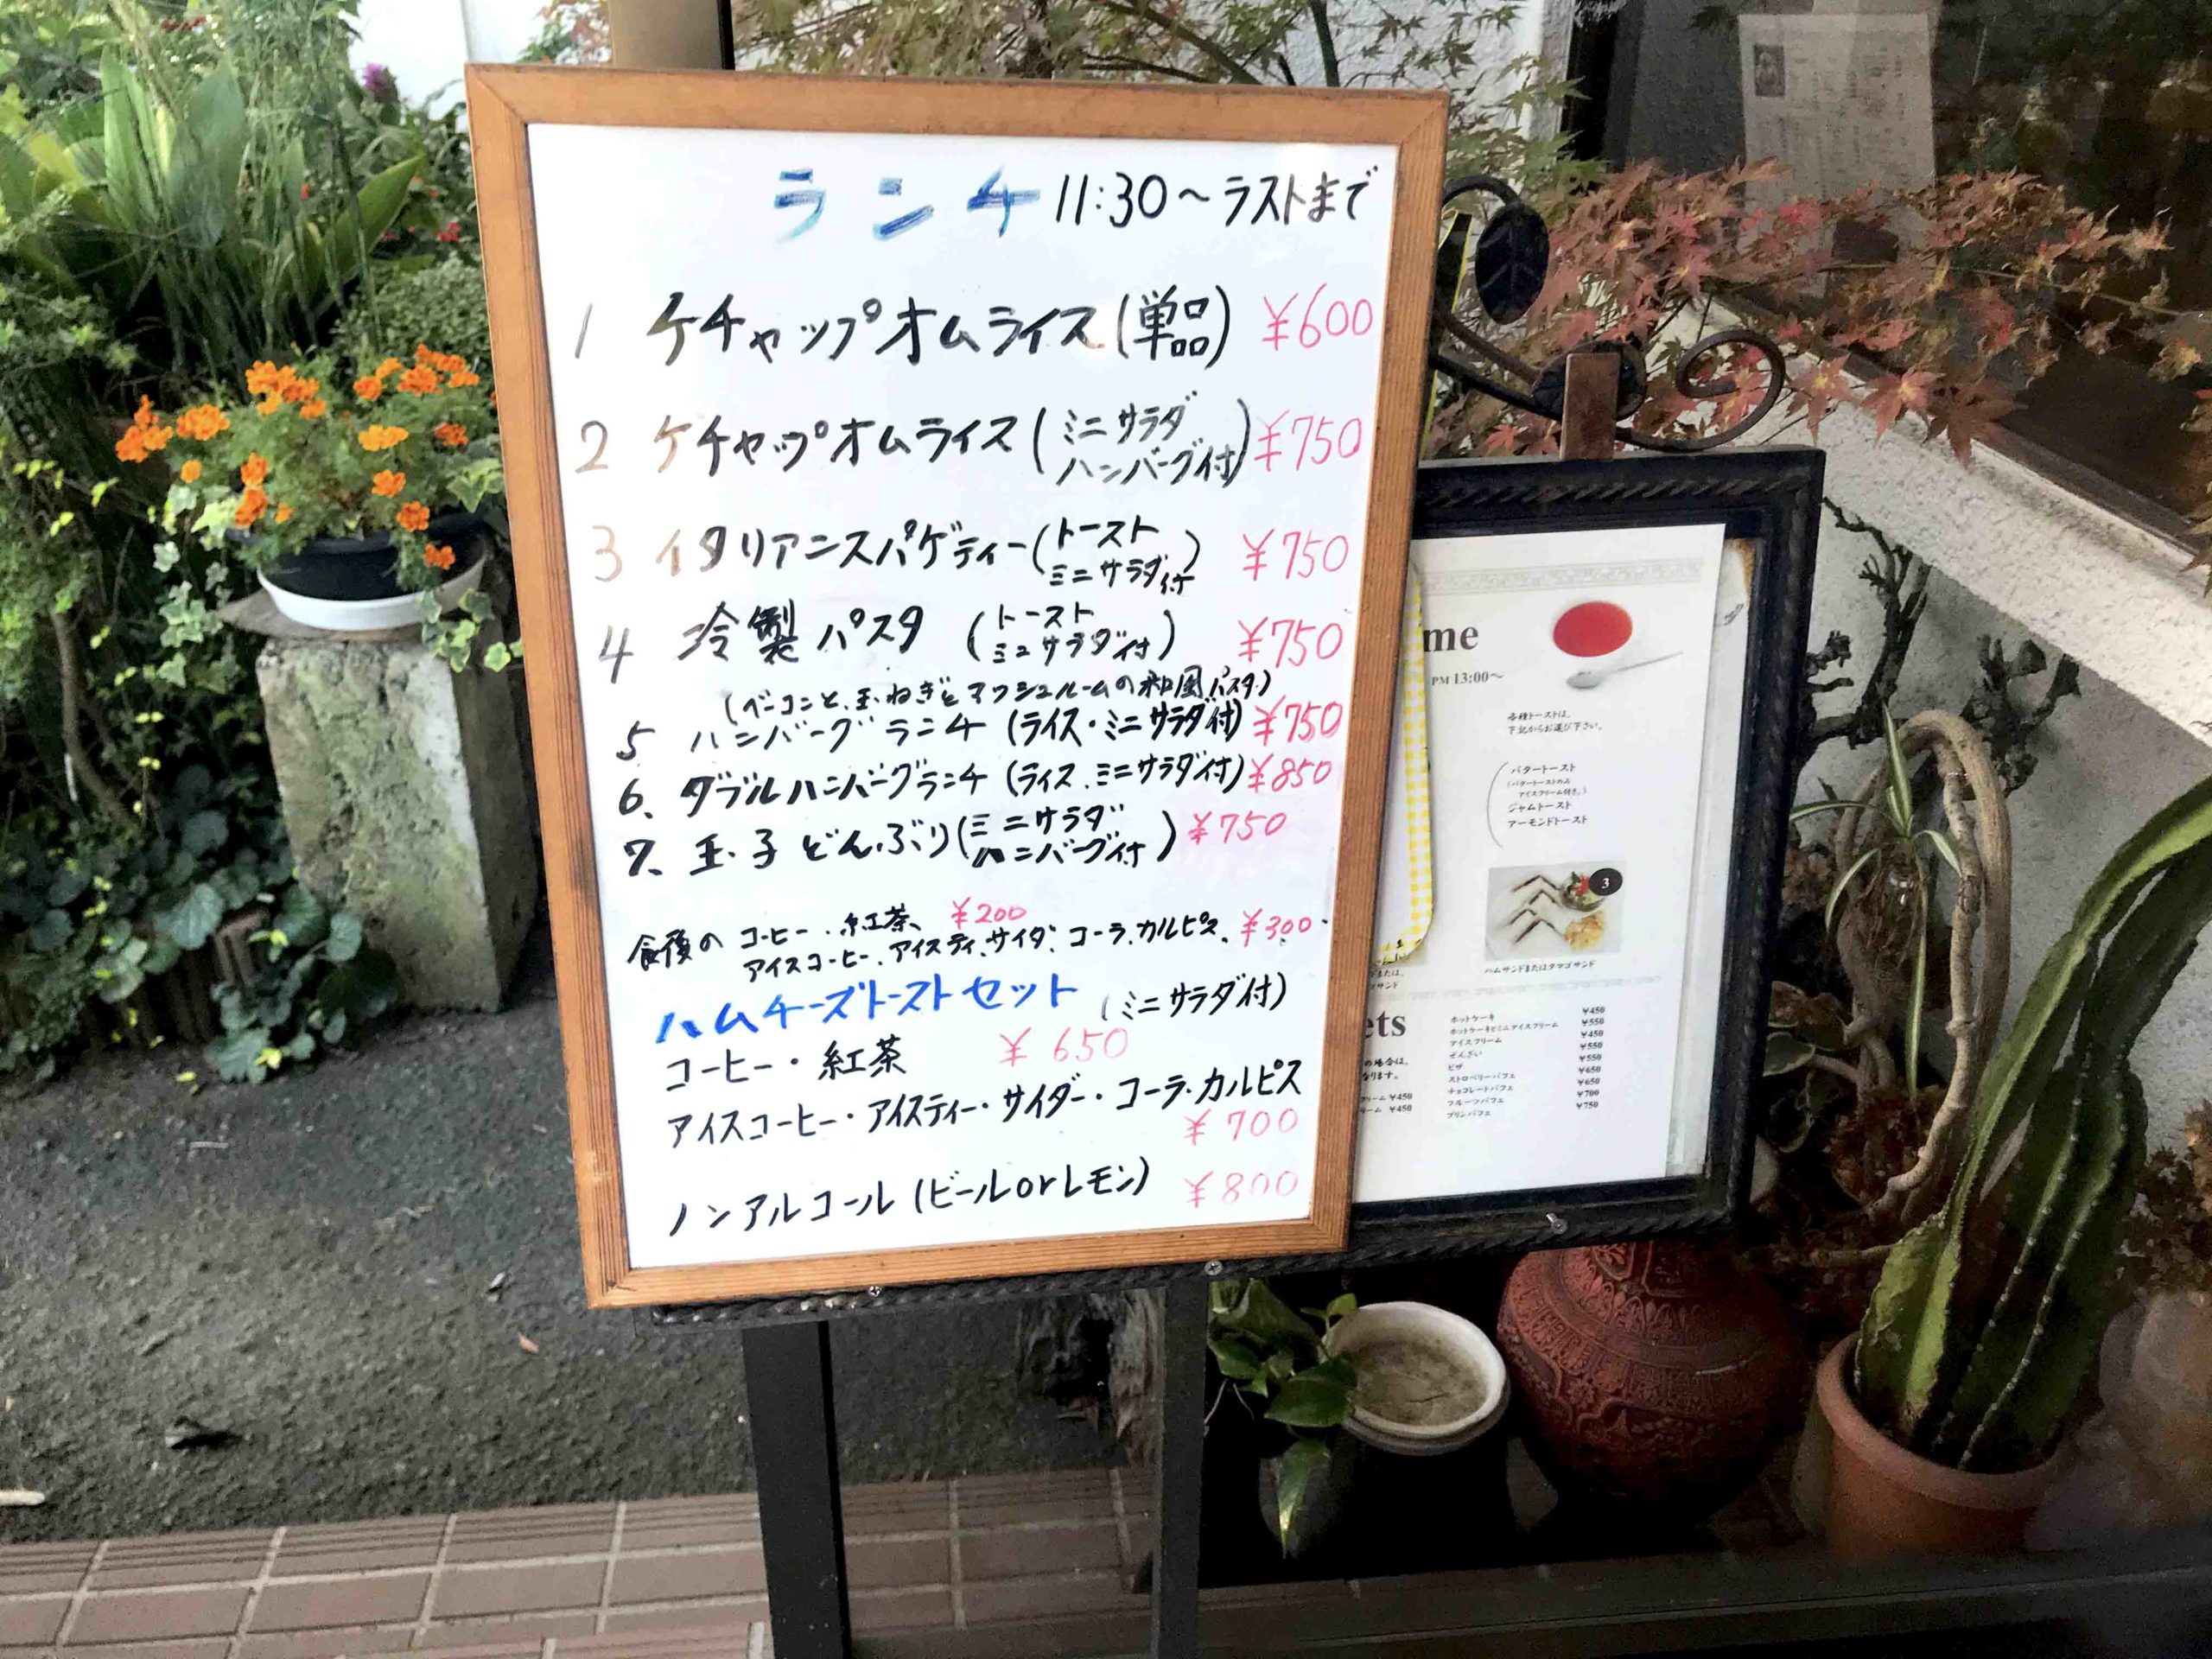 ランチ 11:30～ラストまで
1 ケチャップオムライス(単品) ¥600
2 ケチャップオムライス(ミニサラダ ハンバーグ付) ¥750
3 イタリアンスパゲティー(トースト ミニサラダ付) ¥750
4 冷製パスタ (トースト ミニサラダ付) ¥750
(ベーコンと玉ねぎとマッシュルームの和風パスタ)
5 ハンバーグランチ (ライス・ミニサラダ付) ¥750
6、ダブルハンバーグランチ (ライス、ミニサラダ付) ¥850
7、玉子どんぶり(ミニサラダ ハンバーグ付) ¥750
食後の コーヒー、紅茶、 ¥200
アイスコーヒー、アイスティ、サイダ、コーラ、カルピス、 ¥300
ハムチーズトーストセット (ミニサラダ付)
コーヒー・紅茶 ¥650
アイスコーヒー・アイスティー・サイダー・コーラ・カルピス
¥700
ノンアルコール (ビールorレモン) ¥800
me
PM 13:00～
各種トーストは、
下記からお選び下さい。
バタートースト
(バタートーストのみ
アイスクリーム付き。)
ジャムトースト
アーモンドトースト
3
または、
サンド
ハムサンドまたはタマゴサンド
ets
の場合は、
なります。
クリーム ¥450
ーム ¥450
ホットケーキ ¥450
ホットケーキとミニアイスクリーム ¥550
アイスクリーム ¥450
ぜんざい ¥550
ピザ ¥550
ストロベリーパフェ ¥650
チョコレートパフェ ¥650
フルーツパフェ ¥700
プリンパフェ ¥750